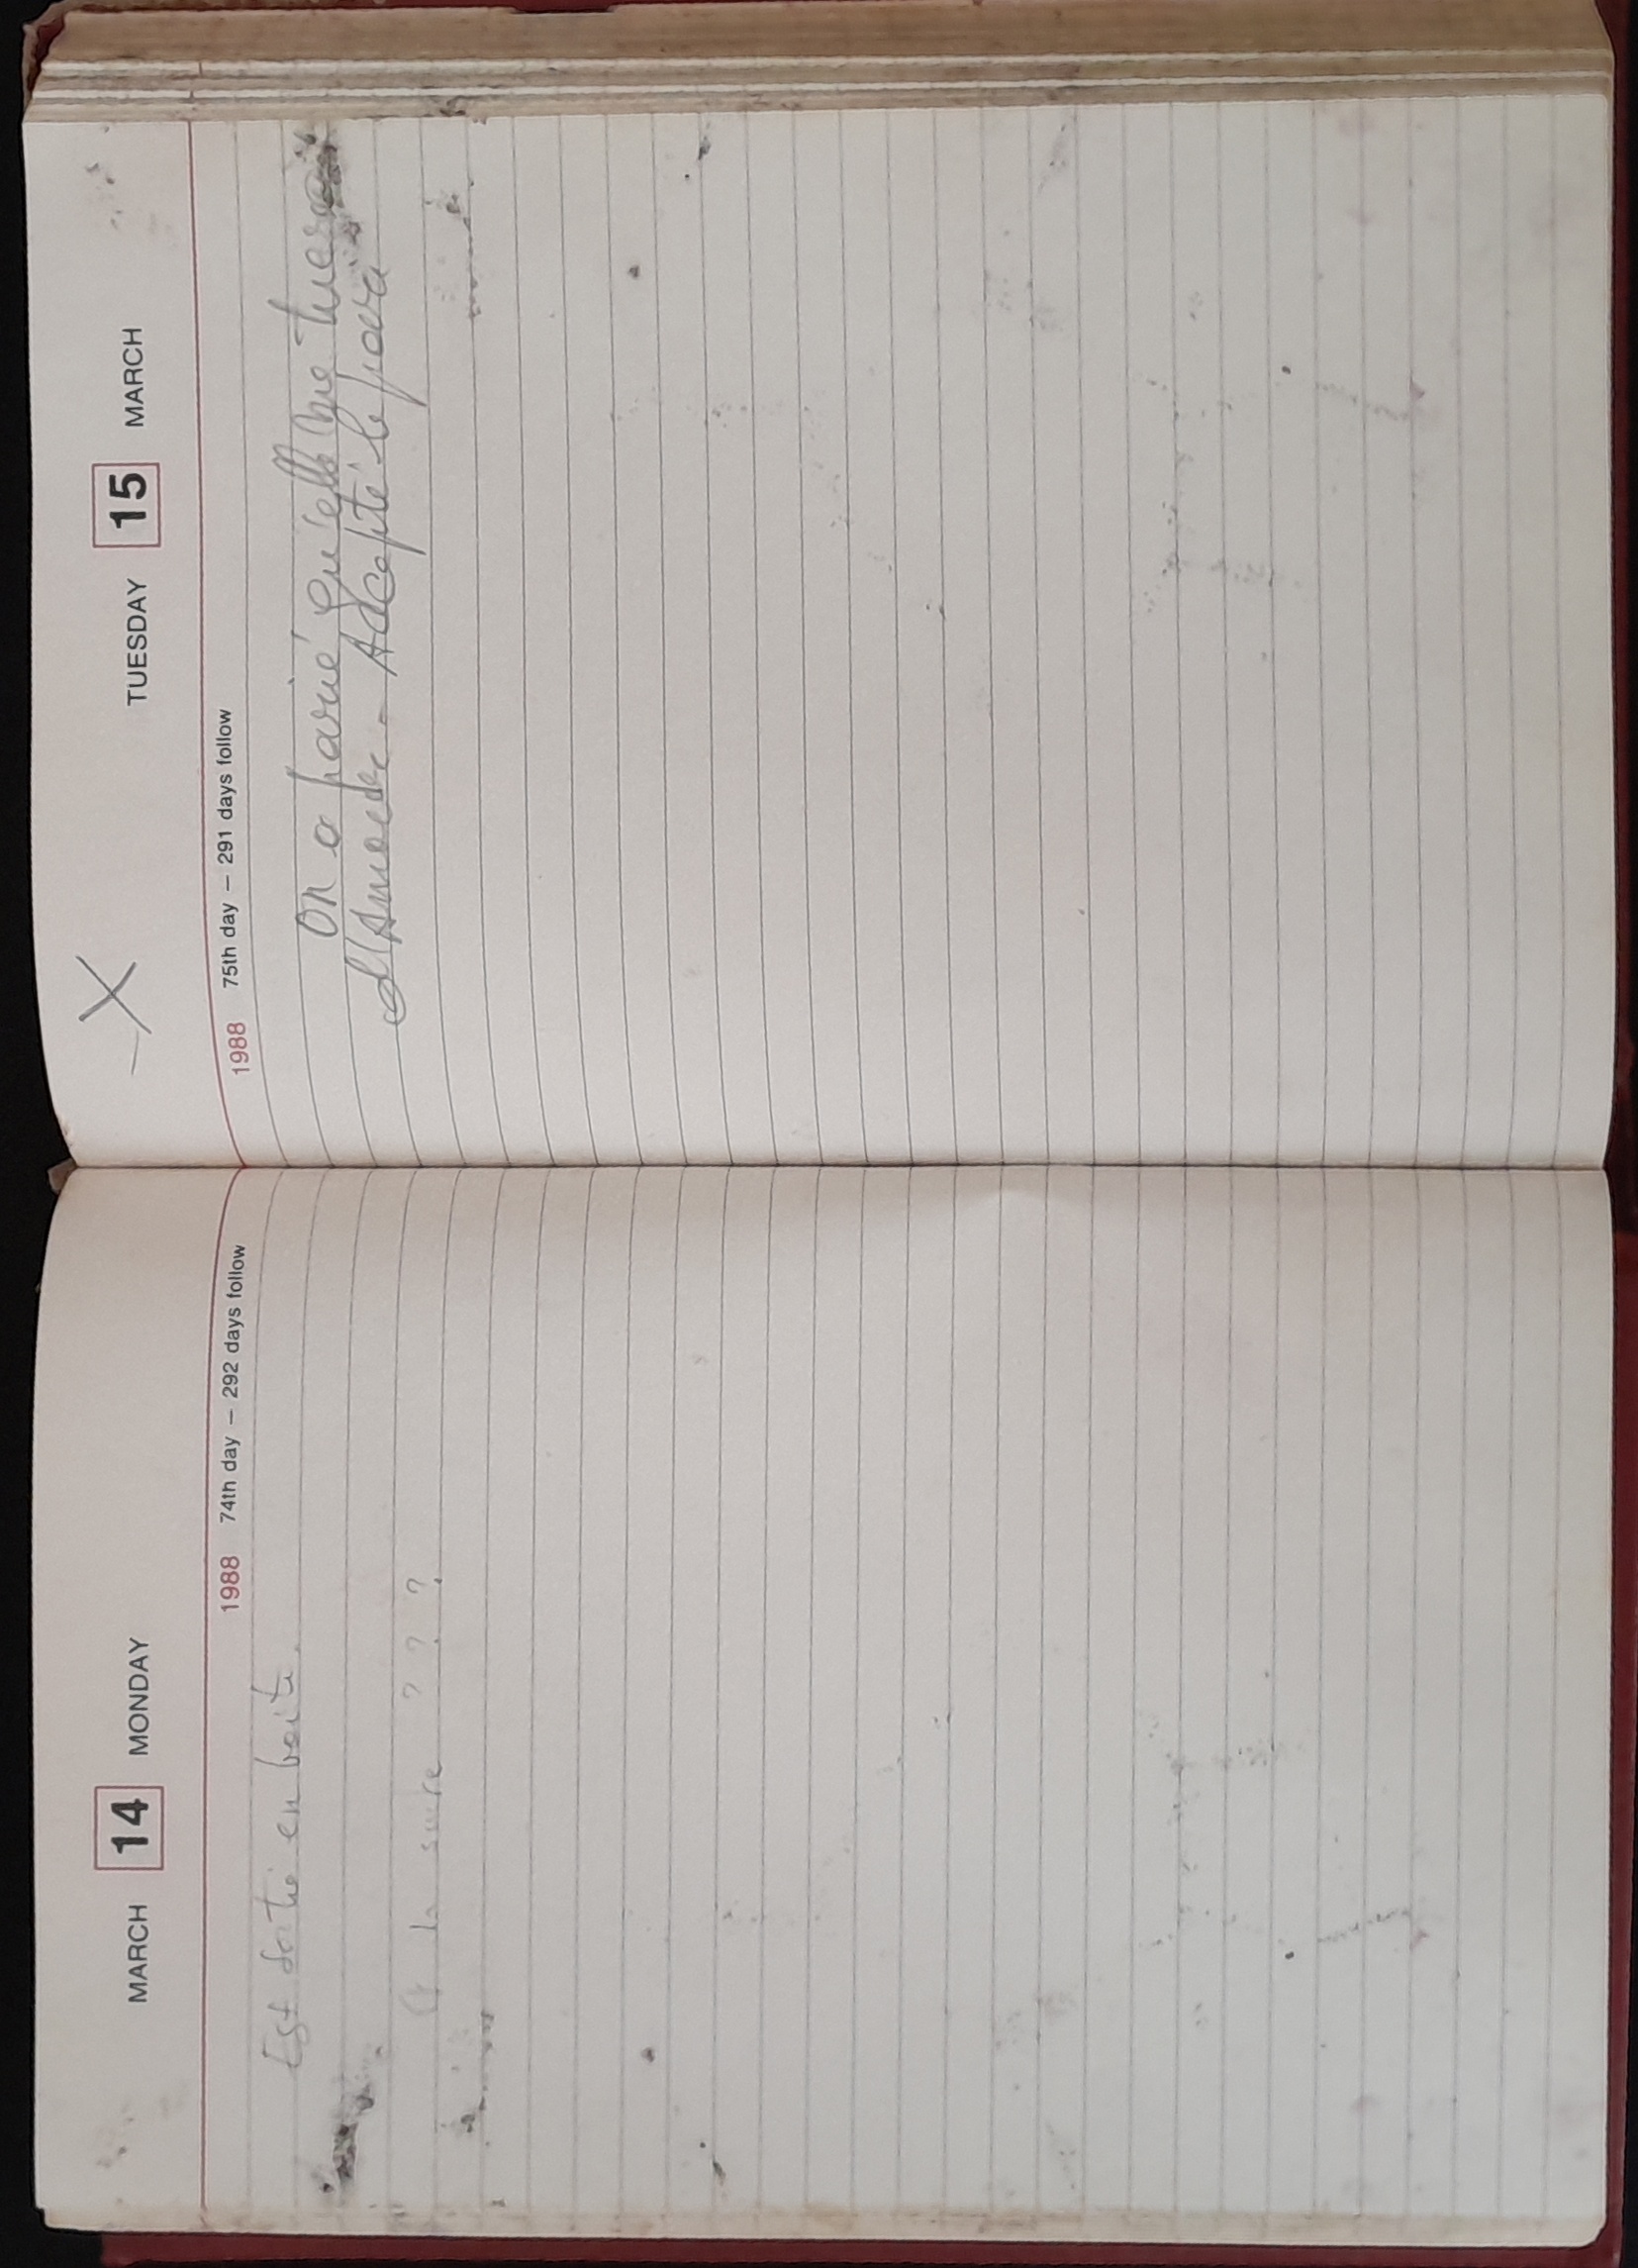 MARCH 14 MONDAY
1988 74th day – 292 days follow
Est sortie en boite.
Et la suite ? ? ?
TUESDAY 15 MARCH
1988 75th day – 291 days follow
On a parié qu'elle me tuera
Accepté le pari